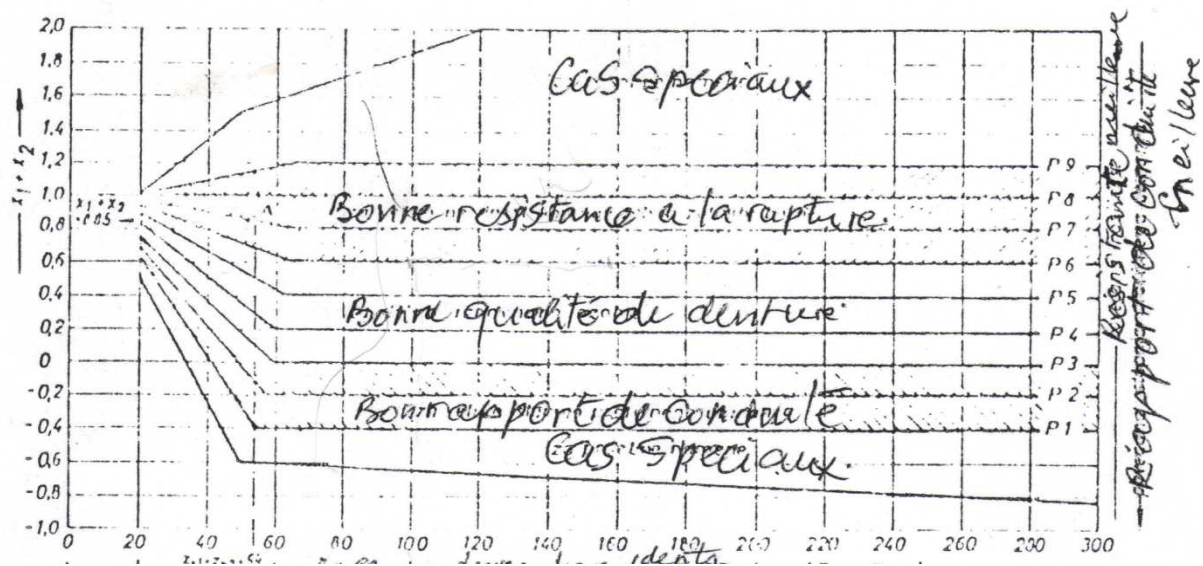 2,0
1,8
1,6
1,4
1,2
1,0
0,8
0,6
0,4
0,2
0
-0,2
-0,4
-0,6
-0,8
-1,0
x1+x2
x1+x2
Cas speciaux
Bonne resistance a la rupture
Bonne qualité de denture
Bon rapport de conduite
Cas Speciaux.
P9
P8
P7
P6
P5
P4
P3
P2
P1
meilleure
rapport de conduite
meilleure
0 20 40 60 80 100 120 140 160 180 200 220 240 260 280 300
dents